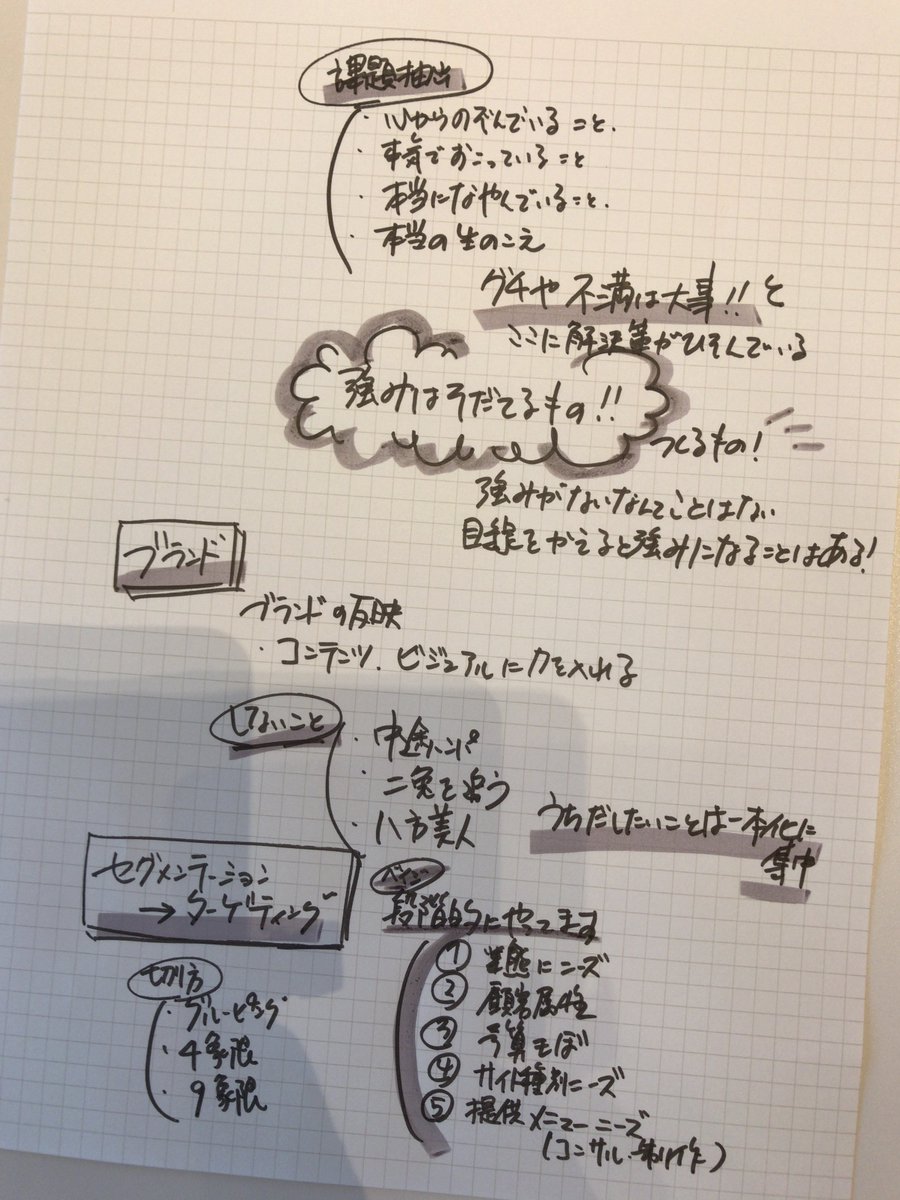 課題抽出
・心からのぞんでいること.
・本気でおこっていること
・本当になやんでいること.
・本当の生のこえ
グチや不満は大事!!と
ここに解決策がひそんでいる
強みはそだてるもの!!
つくるもの!
強みがないなんてことはない
目線をかえると強みになることはある!
ブランド
ブランドの反映
・コンテンツ.ビジュアルに力を入れる
してないこと
・中途ハンパ
・二兎を追う
・八方美人
うちだしたいことは一本化に
集中
セグメンテーション
→ターゲティング
段階的にやってます
① 業態にニーズ
② 顧客属性
③ 予算きぼ
④ サイト種別ニーズ
⑤ 提供メニューニーズ
(コンサル、制作)
切り方
・グルーピング
・4象限
・9象限